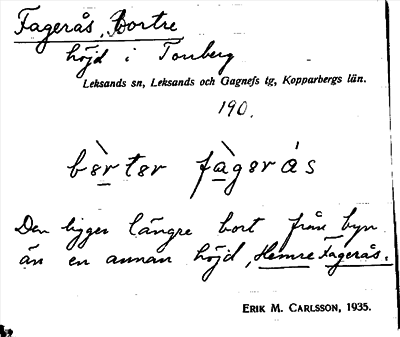 Fagerås, Bortre
höjd i Tunberg
Leksands sn, Leksands och Gagnefs tg, Kopparbergs län.
190.
bèrter fàgerás
Den ligger längre bort från byn
än en annan höjd, Hemre Fagerås.
ERIK M. CARLSSON, 1935.